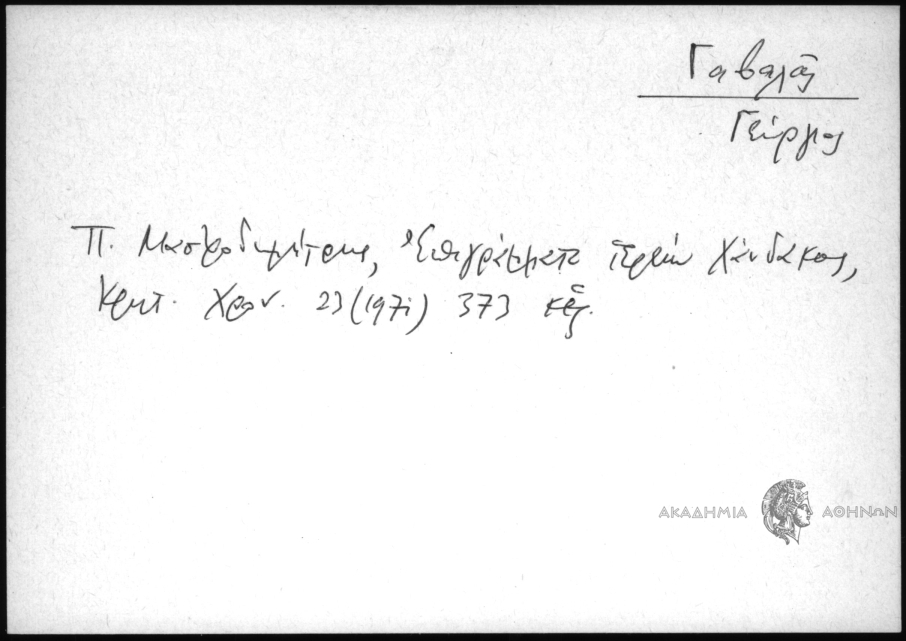 Γαβαλᾶς
Γεώργιος
Π. Μαστροδημήτρης, Ἐπιγράμματα ἱερέων Χάνδακος,
Κρητ. Χρον. 23 (1971) 373 κἑξ.
ΑΚΑΔΗΜΙΑ ΑΘΗΝΩΝ